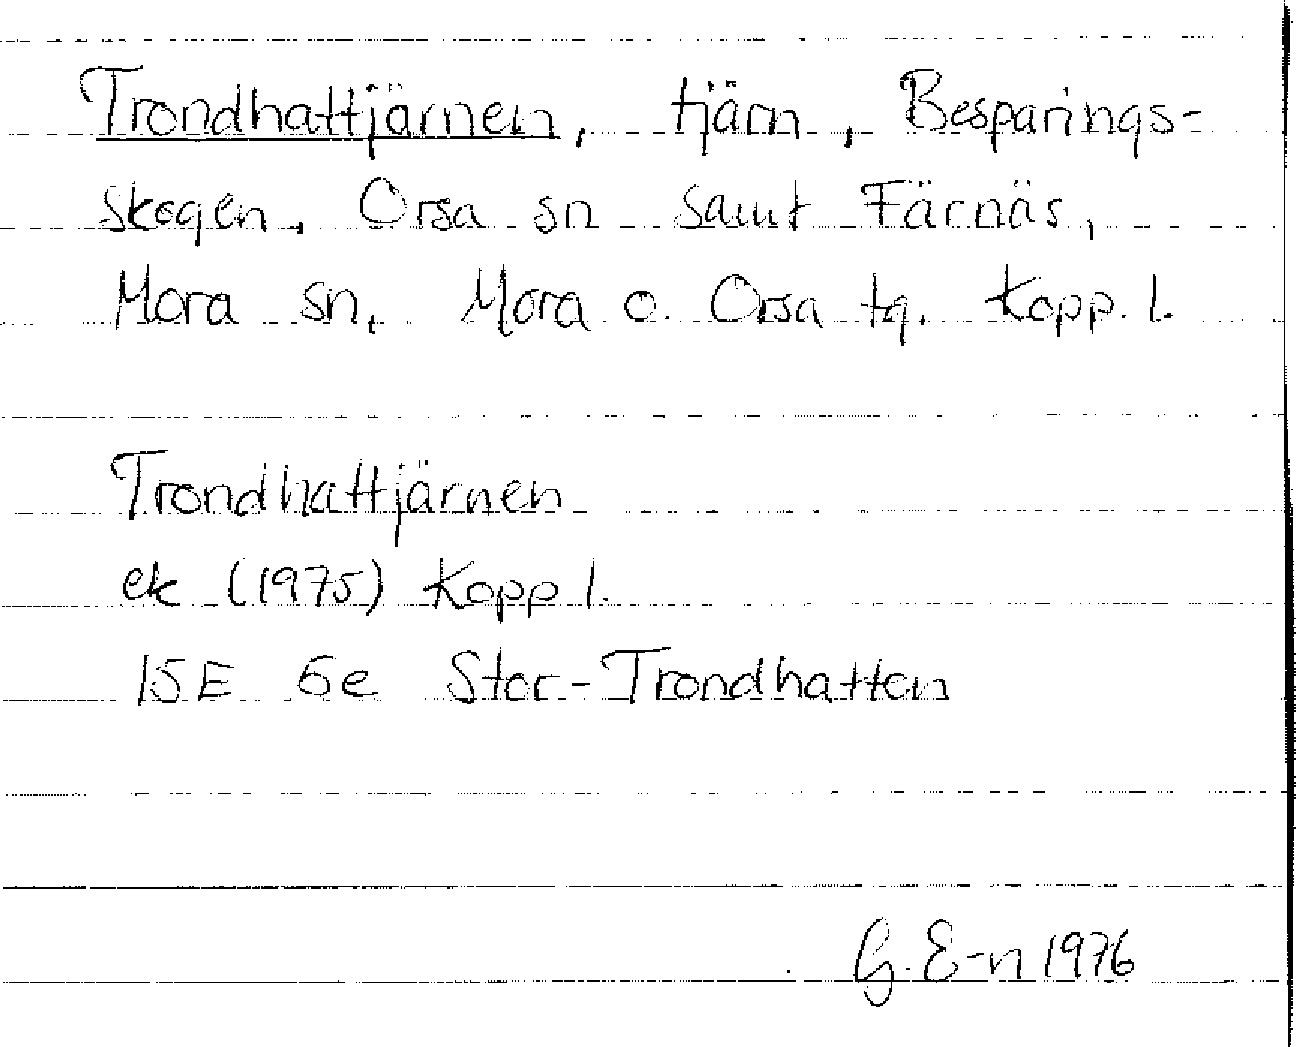 Trondhattjärnen, tjärn, Besparings-
skogen, Orsa sn samt Färnäs,
Mora sn, Mora o. Orsa tg. Kopp. l.
Trondhattjärnen
ek (1975) Kopp l.
15E 6e Stor-Trondhatten
G. E-n 1976